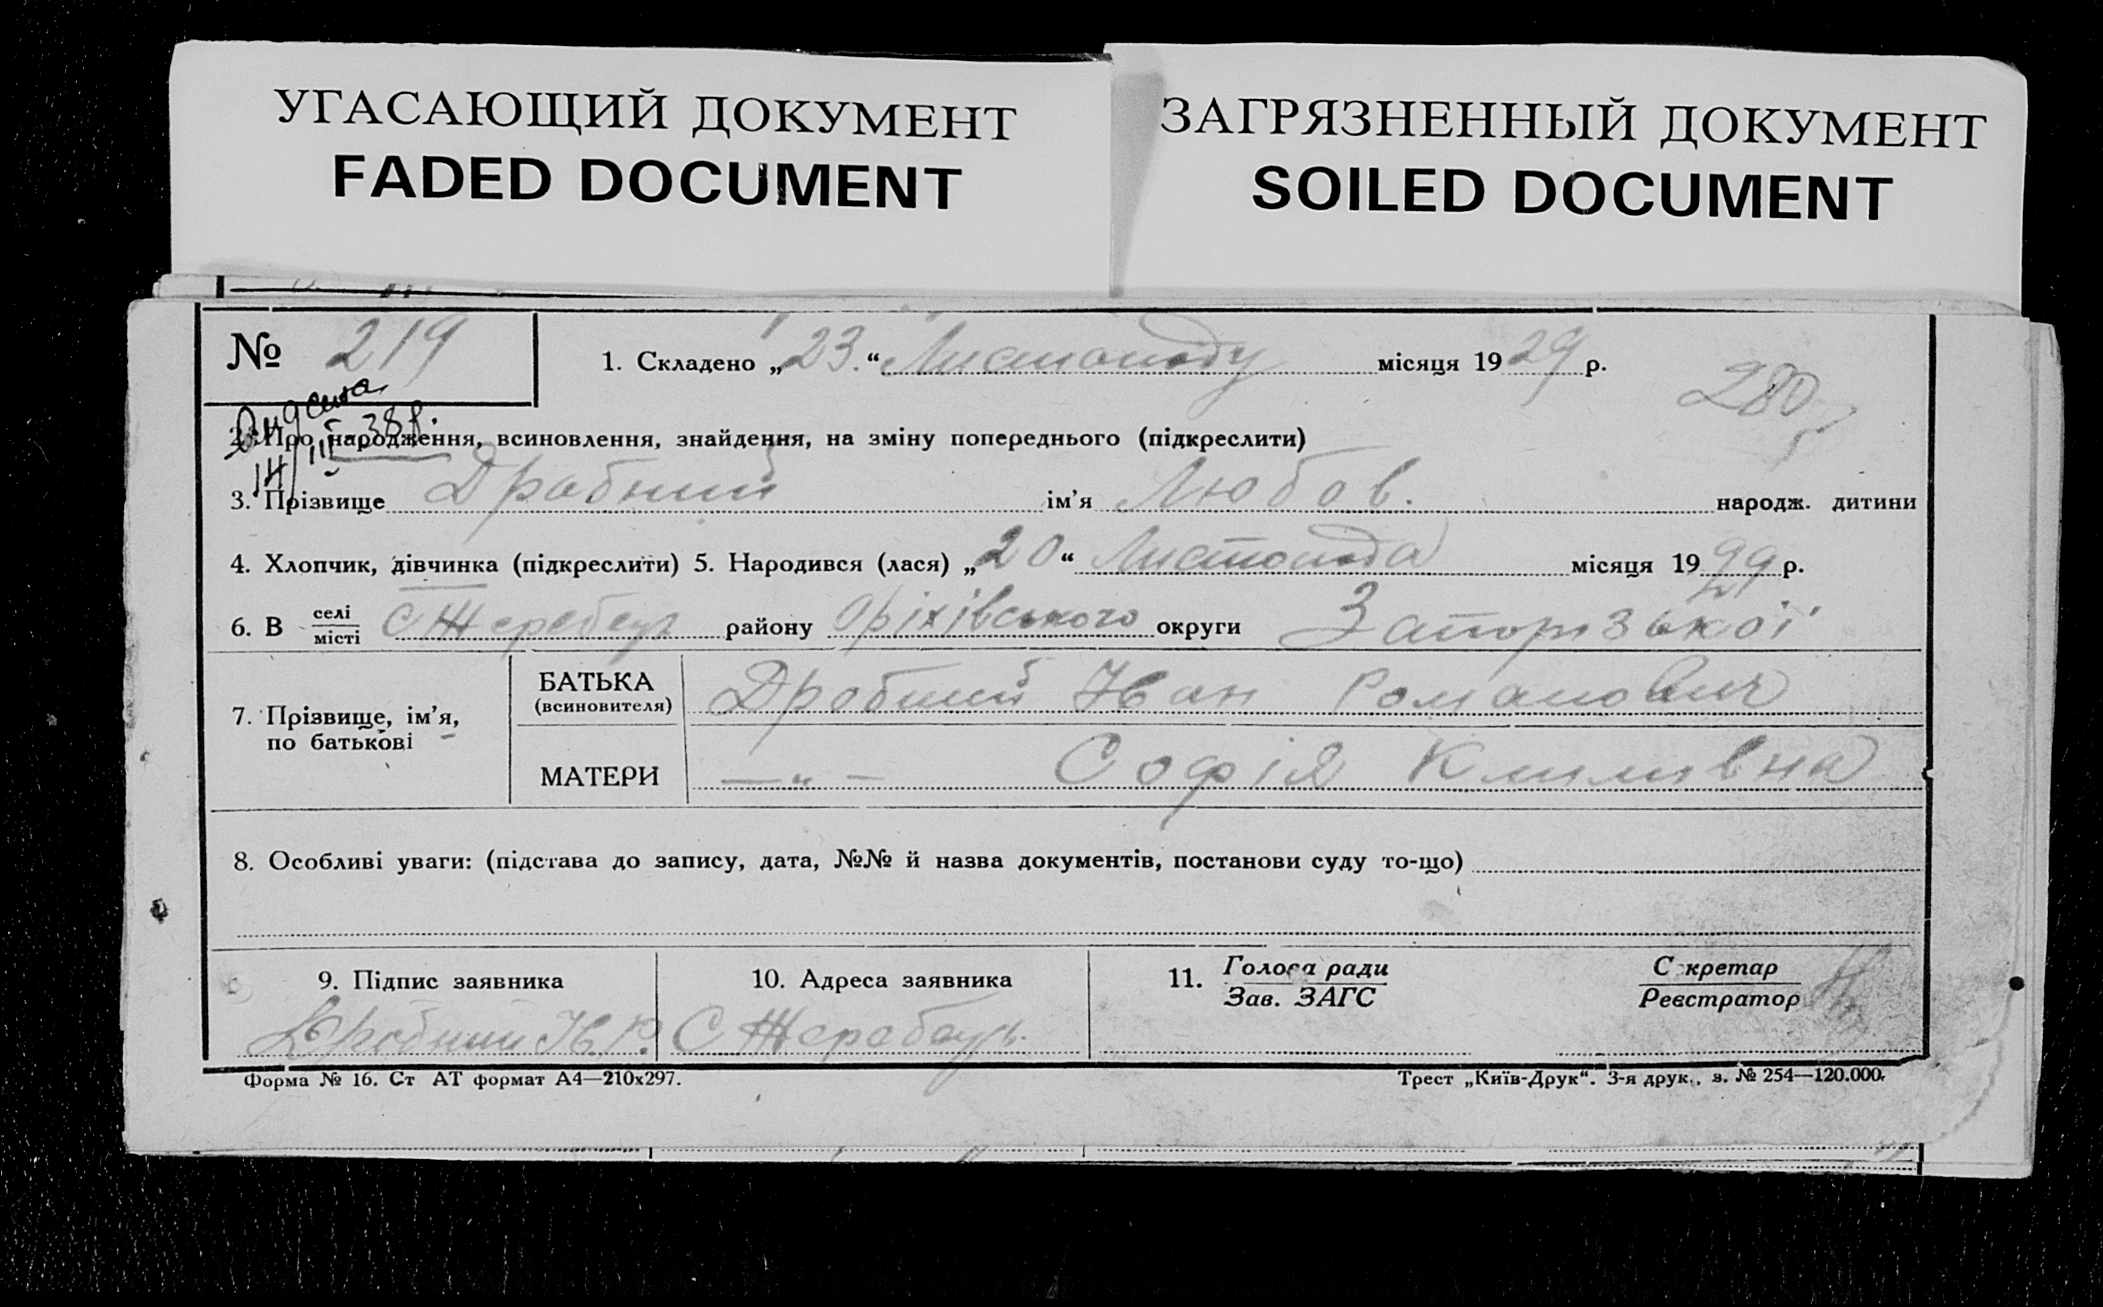 УГАСАЮЩИЙ ДОКУМЕНТ
FADED DOCUMENT
ЗАГРЯЗНЕННЫЙ ДОКУМЕНТ
SOILED DOCUMENT
№ 219
1. Складено „23.“ Листопаду місяця 1929 р.
280
14/III 38р.
2. Про народження, всиновлення, знайдення, на зміну попереднього (підкреслити)
3. Прізвище Дробний ім'я Любов. народж. дитини
4. Хлопчик, дівчинка (підкреслити) 5. Народився (лася) „20“ Листопада місяця 1929 р.
6. В селі
місті
С Жеребець району Оріхівського округи Запорізької
7. Прізвище, ім'я,
по батькові
БАТЬКА
(всиновителя)
Дробний Иван Романович
МАТЕРИ —„— Софія Климивна
8. Особливі уваги: (підстава до запису, дата, №№ й назва документів, постанови суду то-що)
9. Підпис заявника
Дробний И.Р.
10. Адреса заявника
С Жеребець.
11. Голова ради
Зав. ЗАГС
С кретар
Реєстратор
Форма № 16. Ст АТ формат А4—210х297.
Трест „Київ-Друк“. 3-я друк., з. № 254—120.000.